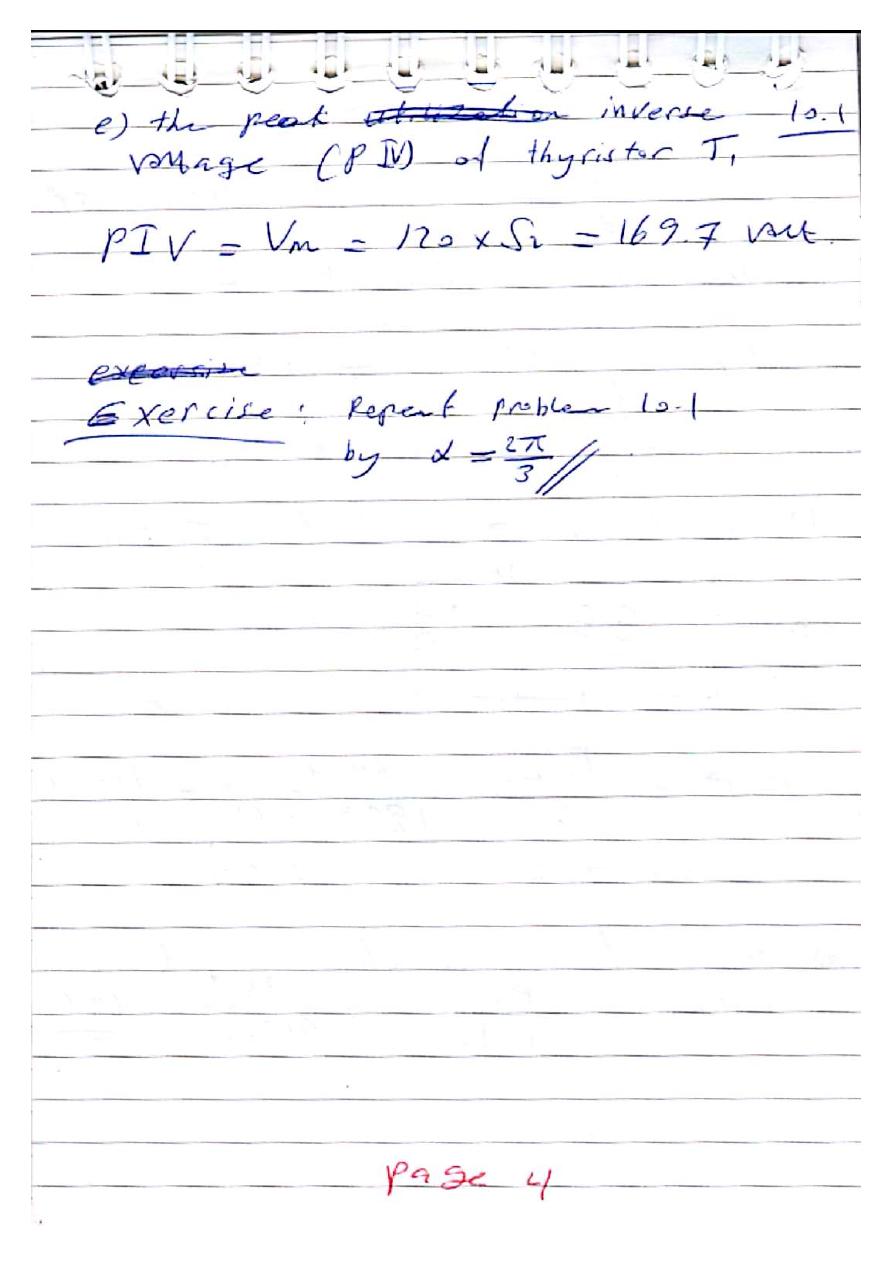 e) the peak inverse 10.1
voltage (PIV) of thyristor T₁
PIV = Vm = 120 x √2 = 169.7 volt.
Exercise: Repeat problem 10.1
by α = 2π/3 //
page 4